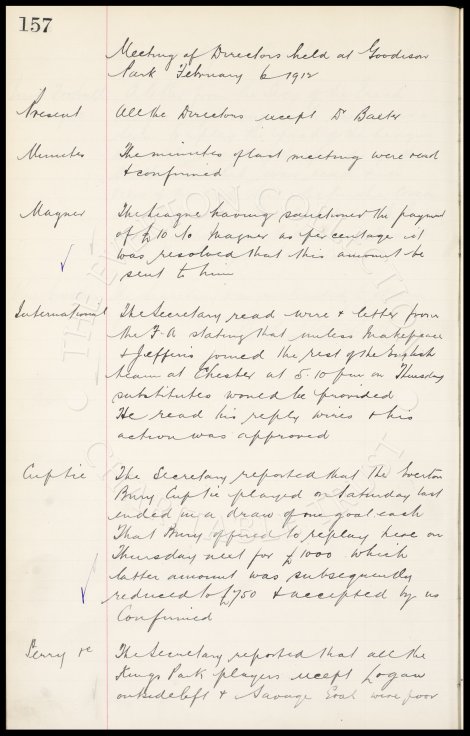 157
Meeting of Directors held at Goodison
Park February 6 1912
Present All the Directors except Dr Baxter
Minutes The minutes of last meeting were read
& confirmed
Magner The League having sanctioned the payment
of £10 to Magner as percentage it
was resolved that this amount be
sent to him
International The Secretary read wire & letter from
the F.A stating that unless Makepeace
& Jefferis joined the rest of the English
team at Chester at 5-10 pm on Thursday
substitutes would be provided
He read his reply wires & his
action was approved
Cup tie The Secretary reported that the Everton
Bury Cup tie played on Saturday last
ended in a draw of one goal each
That Bury offered to replay here on
Thursday next for £1000 which
latter amount was subsequently
reduced to £750 & accepted by us
Confirmed
Perry re The Secretary reported that all the
Kings Park players except Logan
outside left & Savage Goal were poor
THE EVERTON COLLECTION